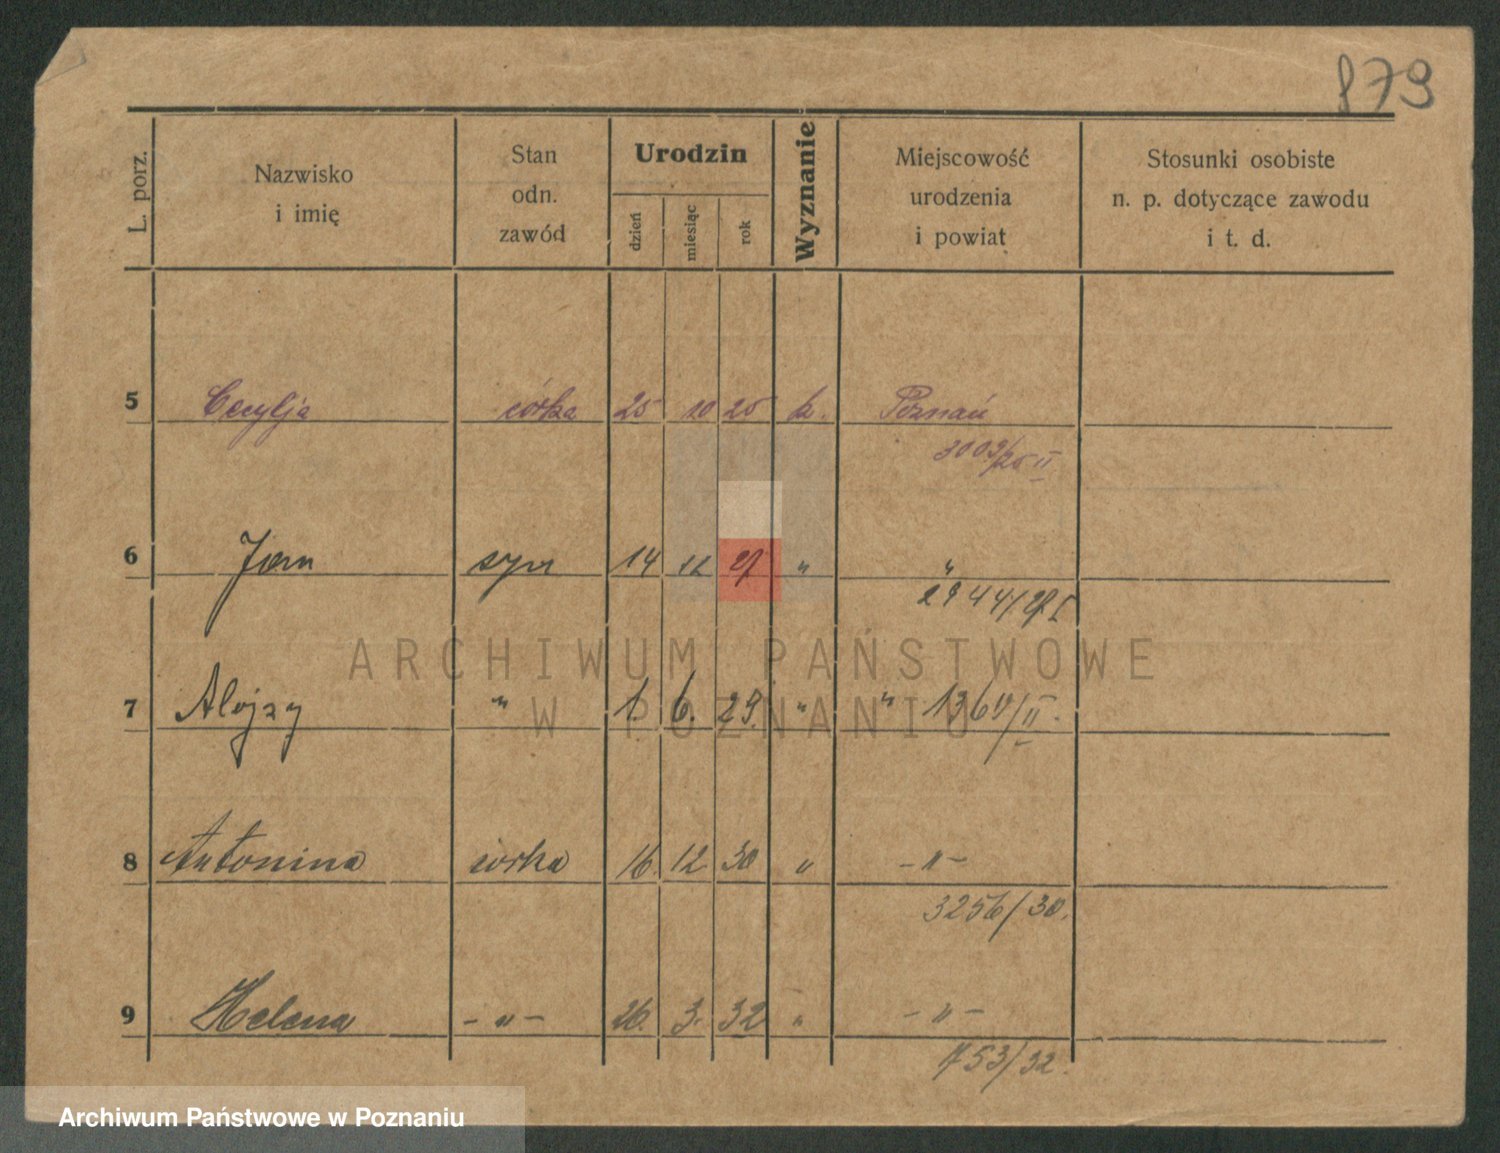 879
L. porz.
Nazwisko
i imię
Stan
odn.
zawód
Urodzin
dzień
miesiąc
rok
Wyznanie
Miejscowość
urodzenia
i powiat
Stosunki osobiste
n. p. dotyczące zawodu
i t. d.
5 Cecylja córka 25 10 25 k. Poznań
3009/25 II
6 Jan syn 14 12 27 " "
2944/27 I
7 Alojzy " 1. 6. 29. " "
8 Antonina córka 16. 12 30 " - " -
3256/30.
9 Helena - " - 26. 3. 32 " - " -
753/32.
ARCHIWUM PAŃSTWOWE
W POZNANIU
Archiwum Państwowe w Poznaniu